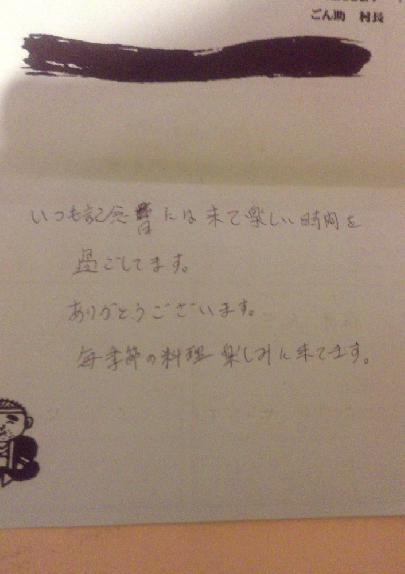 ごん助 村長
いつも記念日には来て楽しい時間を
過ごしてます。
ありがとうございます。
毎季節の料理 楽しみに来てます。